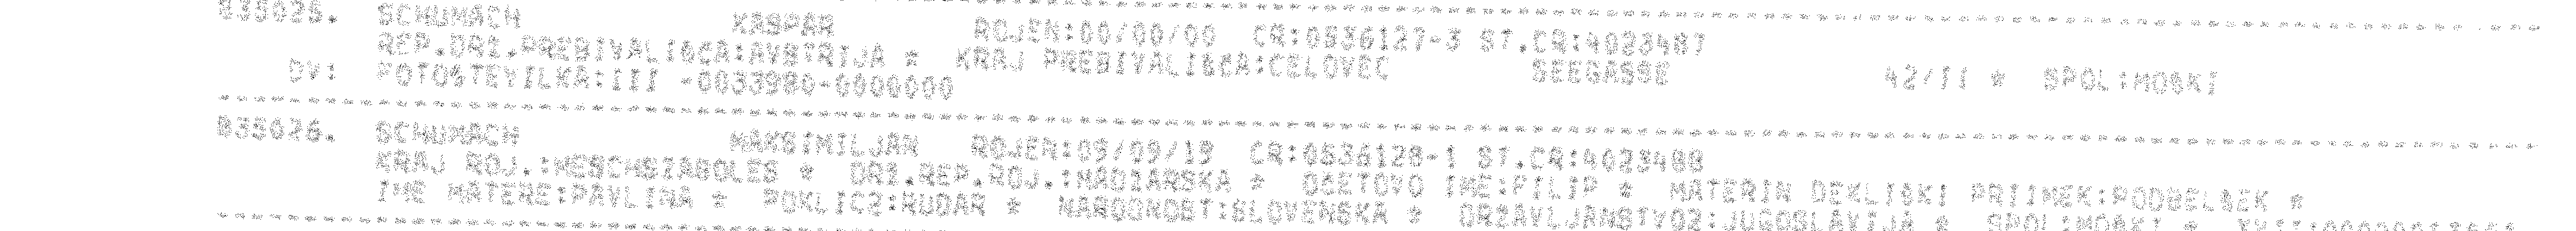 835025. SCHUMACH KASPAR ROJEN:00/00/00 CR:0536127-3 ST.CR:4023487
REP.DRZ.PREBIVALISCA:AVSTRIJA * KRAJ PREBIVALISCA:CELOVEC SEEGASSE 42/11 * SPOL:MOSKI
DV: POTOSTEVILKA:III -0033980-0000000
835026. SCHUMACH MAKSIMILJAN ROJEN:09/09/19 CR:0536128-1 ST.CR:4023488
KRAJ ROJ.: * DRZ.REP.ROJ.:MADZARSKA * OCETOVO IME:FILIP * MATERIN DEKLISKI PRIIMEK:PODBELSEK *
IME MATERE:PAVLINA * POKLIC2:RUDAR * NARODNOST:SLOVENSKA * DRZAVLJANSTVO2:JUGOSLAVIJA * SPOL:MOSKI *